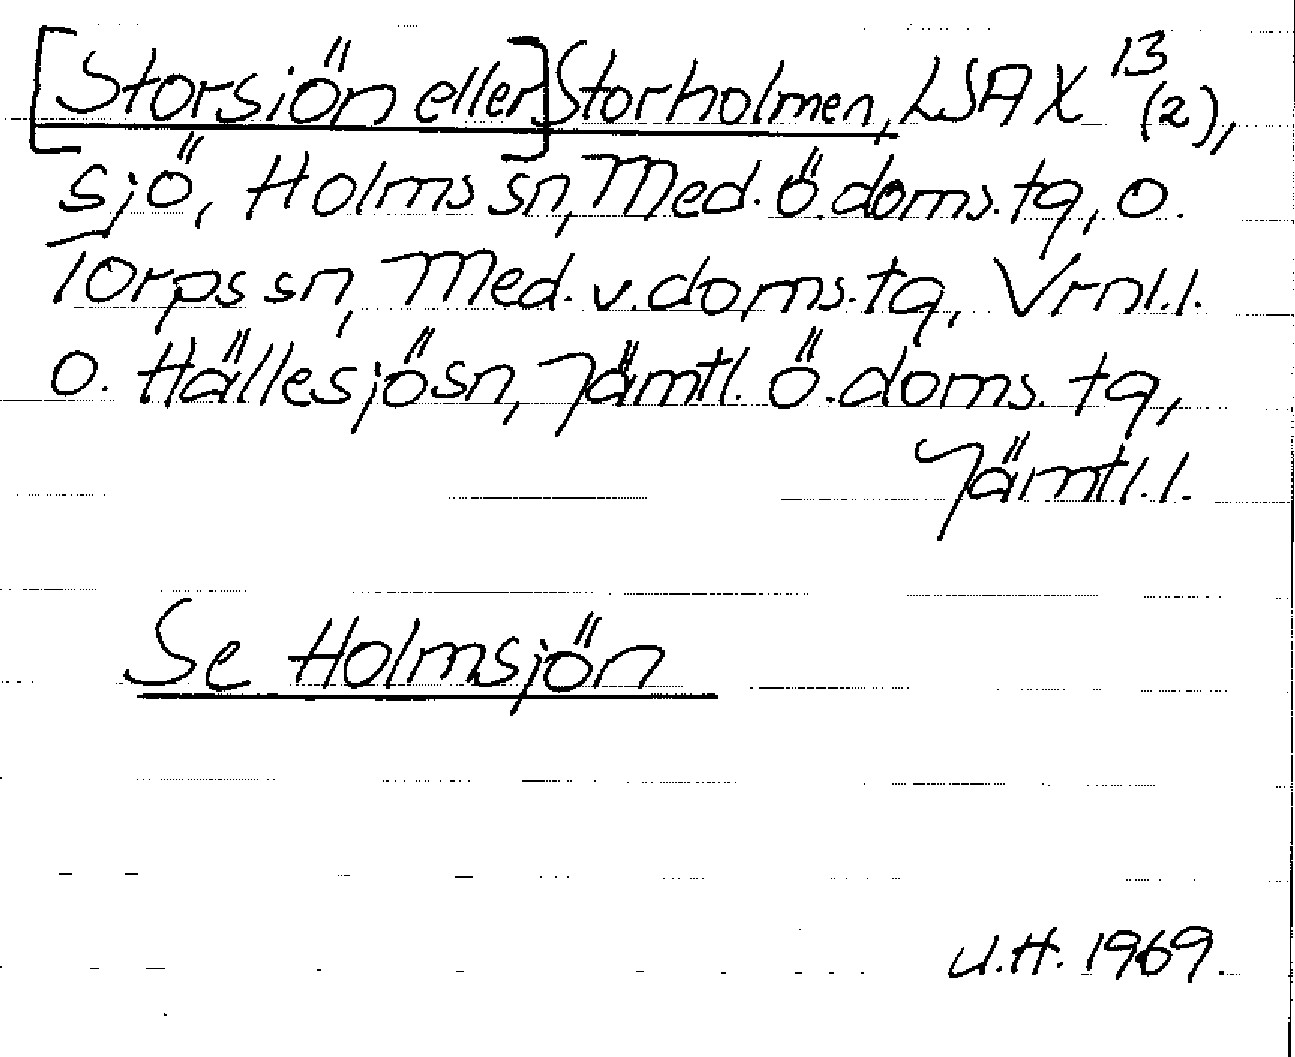 [Storsjön eller] Storholmen, LSA X 13 (2),
sjö, Holms sn, Med. ö. doms. tg, o.
Torps sn, Med. v. doms. tg, Vrnl. l.
o. Hällesjö sn, Jämtl. ö. doms. tg,
Jämtl. l.
Se Holmsjön
U.H. 1969.